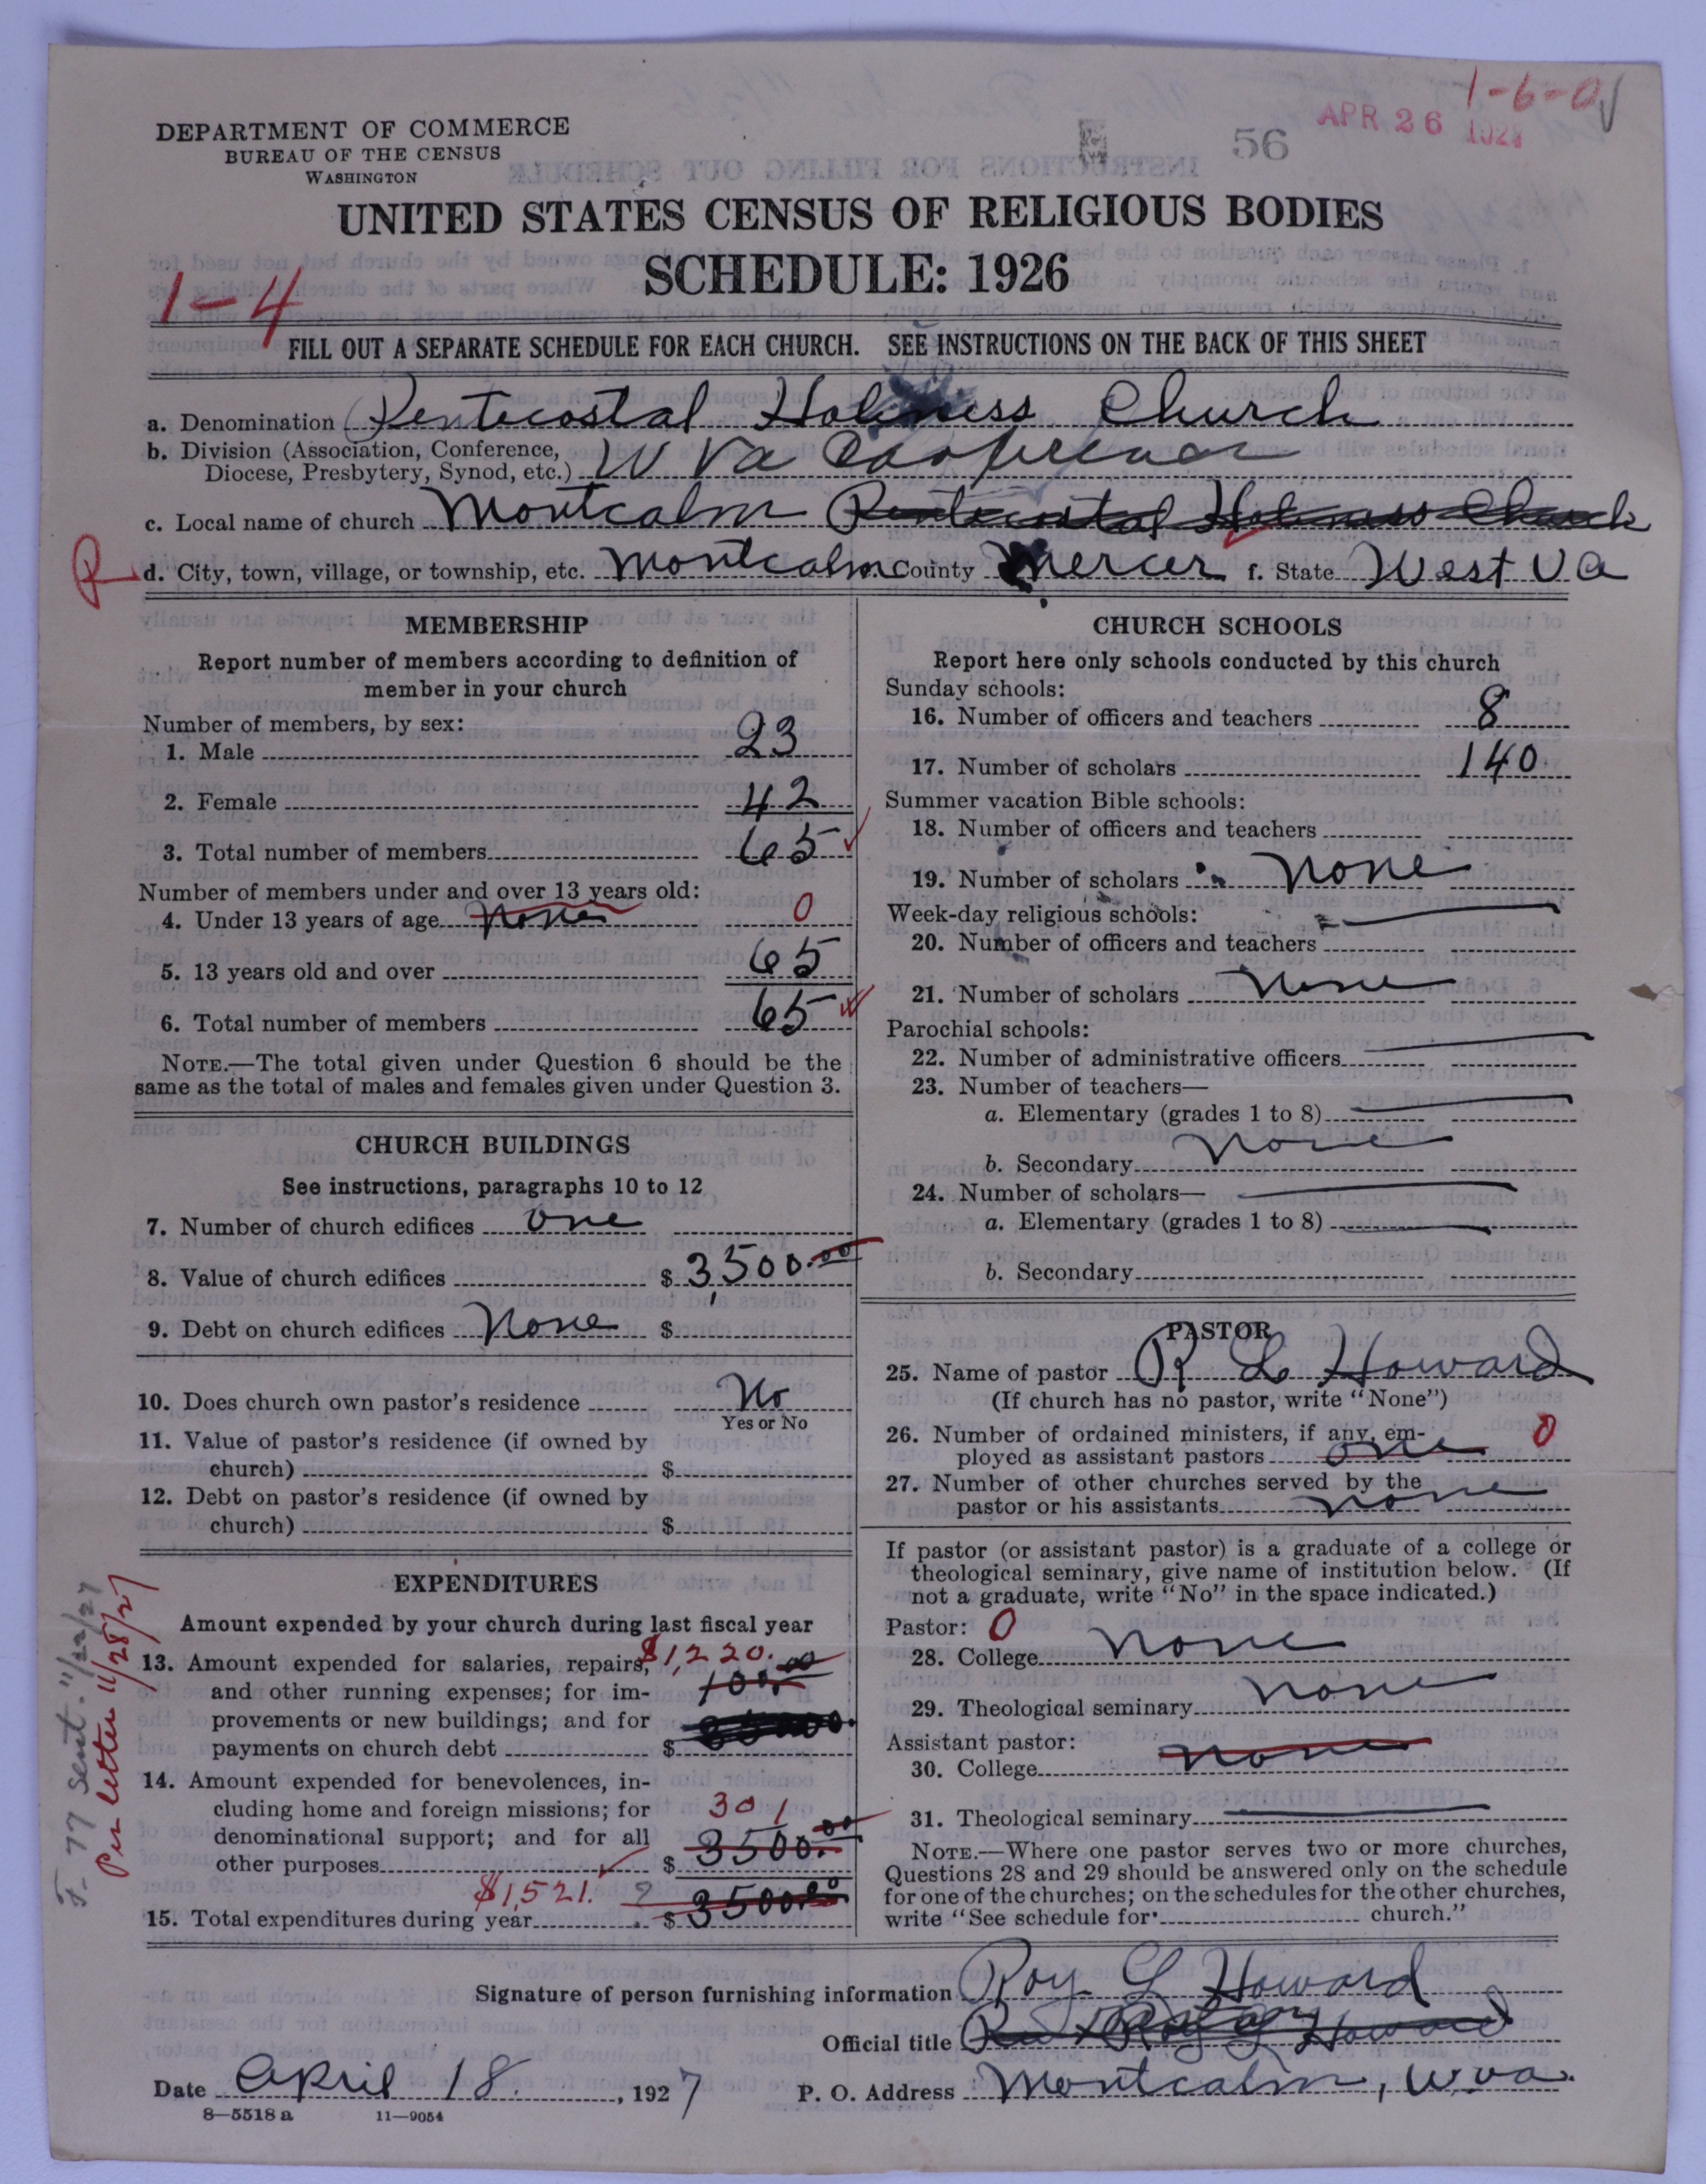 1-6-0
APR 26 1927
56
DEPARTMENT OF COMMERCE
BUREAU OF THE CENSUS
WASHINGTON
UNITED STATES CENSUS OF RELIGIOUS BODIES
SCHEDULE: 1926
1-4
FILL OUT A SEPARATE SCHEDULE FOR EACH CHURCH. SEE INSTRUCTIONS ON THE BACK OF THIS SHEET
a. Denomination Pentecostal Holiness Church
b. Division (Association, Conference, Diocese, Presbytery, Synod, etc.) W Va Conference
c. Local name of church Montcalm Pentecostal Holiness Church
R d. City, town, village, or township, etc. Montcalm e. County Mercer f. State West Va
MEMBERSHIP
Report number of members according to definition of
member in your church
Number of members, by sex:
1. Male 23
2. Female 42
3. Total number of members 65
Number of members under and over 13 years old:
4. Under 13 years of age None 0
5. 13 years old and over 65
6. Total number of members 65
NOTE.—The total given under Question 6 should be the
same as the total of males and females given under Question 3.
CHURCH BUILDINGS
See instructions, paragraphs 10 to 12
7. Number of church edifices one
8. Value of church edifices $ 3,500.00
9. Debt on church edifices None $
10. Does church own pastor's residence No
Yes or No
11. Value of pastor's residence (if owned by
church) $
12. Debt on pastor's residence (if owned by
church) $
EXPENDITURES
Amount expended by your church during last fiscal year
13. Amount expended for salaries, repairs, $1,220.
and other running expenses; for im- 100.00
provements or new buildings; and for
payments on church debt $
14. Amount expended for benevolences, in-
cluding home and foreign missions; for 301
denominational support; and for all
other purposes $ 3500.00
$1,521. ?
15. Total expenditures during year $ 3500.00
F. 77 Sent. 11/22/27
Per letter 11/28/27
CHURCH SCHOOLS
Report here only schools conducted by this church
Sunday schools:
16. Number of officers and teachers 8
17. Number of scholars 140
Summer vacation Bible schools:
18. Number of officers and teachers
19. Number of scholars None
Week-day religious schools:
20. Number of officers and teachers
21. Number of scholars None
Parochial schools:
22. Number of administrative officers
23. Number of teachers—
a. Elementary (grades 1 to 8)
b. Secondary None
24. Number of scholars—
a. Elementary (grades 1 to 8)
b. Secondary
PASTOR
25. Name of pastor R L Howard
(If church has no pastor, write "None")
26. Number of ordained ministers, if any, em-
ployed as assistant pastors one 0
27. Number of other churches served by the
pastor or his assistants none
If pastor (or assistant pastor) is a graduate of a college or
theological seminary, give name of institution below. (If
not a graduate, write "No" in the space indicated.)
Pastor: 0
28. College none
29. Theological seminary none
Assistant pastor:
30. College none
31. Theological seminary
NOTE.—Where one pastor serves two or more churches,
Questions 28 and 29 should be answered only on the schedule
for one of the churches; on the schedules for the other churches,
write "See schedule for church."
Signature of person furnishing information Roy L Howard
Official title Pastor Roy L Howard
Date April 18, 1927 P. O. Address Montcalm, W.va.
8—5518 a 11—9054